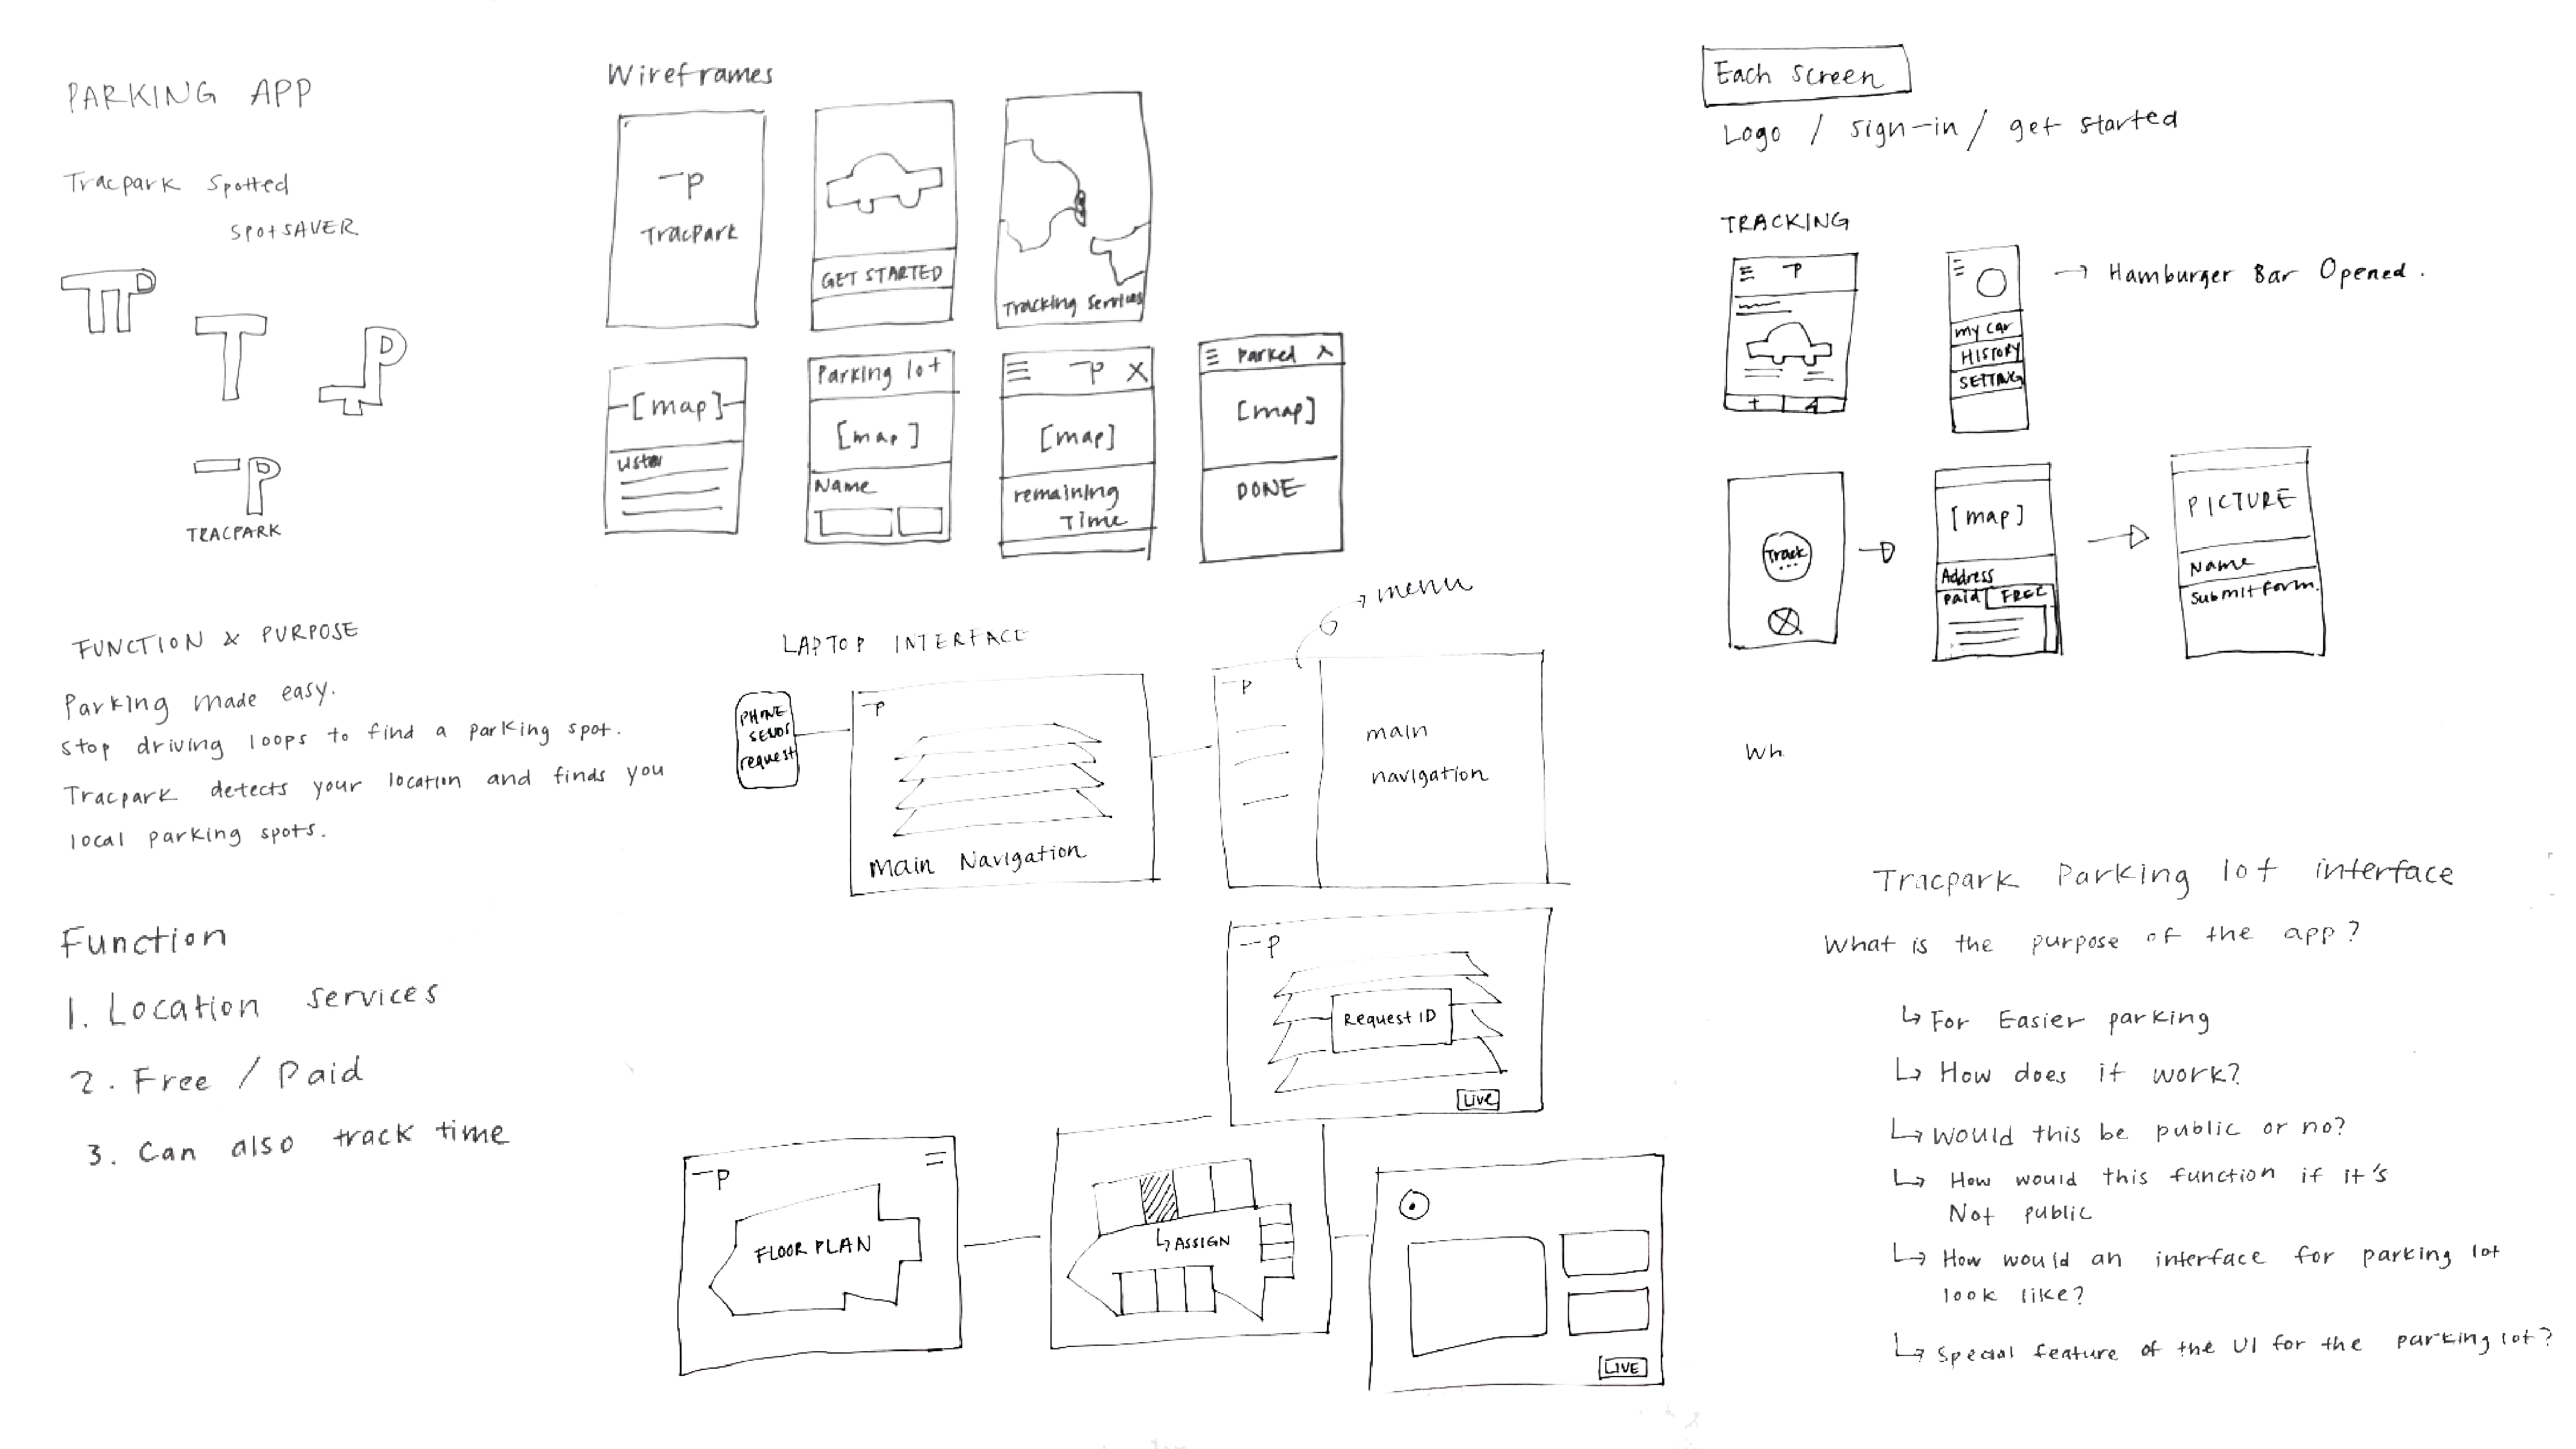 PARKING APP
Tracpark Spotted
SPOTSAVER
TP
T
P
TP
TRACPARK
FUNCTION & PURPOSE
Parking made easy.
Stop driving loops to find a parking spot.
Tracpark detects your location and finds you
local parking spots.
Function
1. Location services
2. Free / Paid
3. Can also track time
Wireframes
P
TracPark
GET STARTED
Tracking Services
[map]
[map]
Parking lot
[map]
Name
P X
[map]
remaining
Time
Parked
[map]
DONE
LAPTOP INTERFACE
menu
PHONE
SENDS
request
P
Main Navigation
P
main
navigation
P
Request ID
Live
P
FLOOR PLAN
ASSIGN
LIVE
Each screen
Logo / sign-in / get started
TRACKING
P
+
my car
HISTORY
SETTING
→ Hamburger Bar Opened.
Track
...
[map]
Address
Paid FREE
PICTURE
Name
Submit Form.
Wh
Tracpark Parking lot interface
What is the purpose of the app?
↳ For Easier parking
↳ How does it work?
↳ Would this be public or no?
↳ How would this function if it's
Not public
↳ How would an interface for parking lot
look like?
↳ Special feature of the UI for the parking lot?